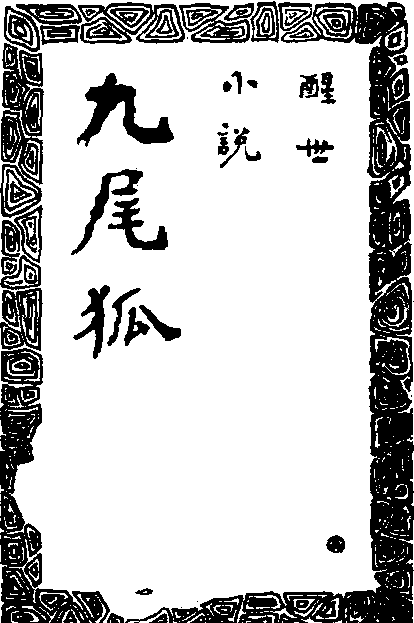 醒世
小説
九尾狐